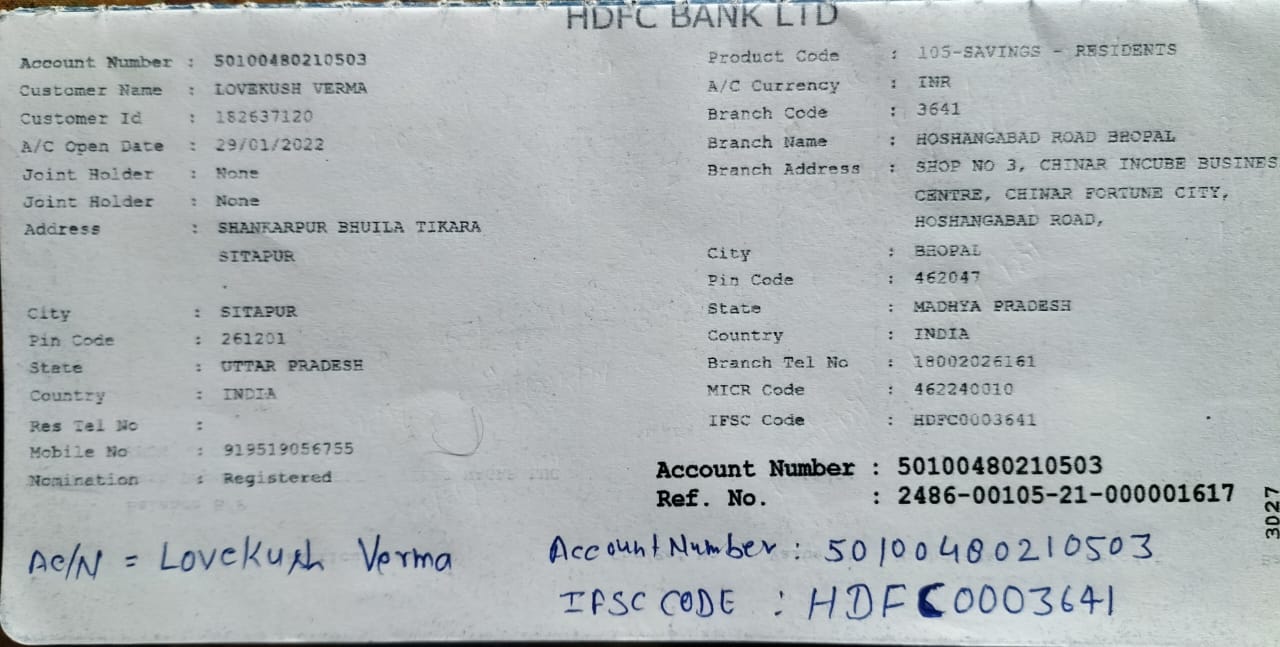 HDFC BANK LTD
Account Number : 50100480210503
Customer Name : LOVEKUSH VERMA
Customer Id : 182637120
A/C Open Date : 29/01/2022
Joint Holder : None
Joint Holder : None
Address : SHANKARPUR BHUILA TIKARA
SITAPUR
.
City : SITAPUR
Pin Code : 261201
State : UTTAR PRADESH
Country : INDIA
Res Tel No :
Mobile No : 919519056755
Nomination : Registered
Product Code : 105-SAVINGS - RESIDENTS
A/C Currency : INR
Branch Code : 3641
Branch Name : HOSHANGABAD ROAD BHOPAL
Branch Address : SHOP NO 3, CHINAR INCUBE BUSINES
CENTRE, CHINAR FORTUNE CITY,
HOSHANGABAD ROAD,
City : BHOPAL
Pin Code : 462047
State : MADHYA PRADESH
Country : INDIA
Branch Tel No : 18002026161
MICR Code : 462240010
IFSC Code : HDFC0003641
Account Number : 50100480210503
Ref. No. : 2486-00105-21-000001617
3027
Ac/N = Lovekush Verma
Account Number : 50100480210503
IFSC CODE : HDFC0003641